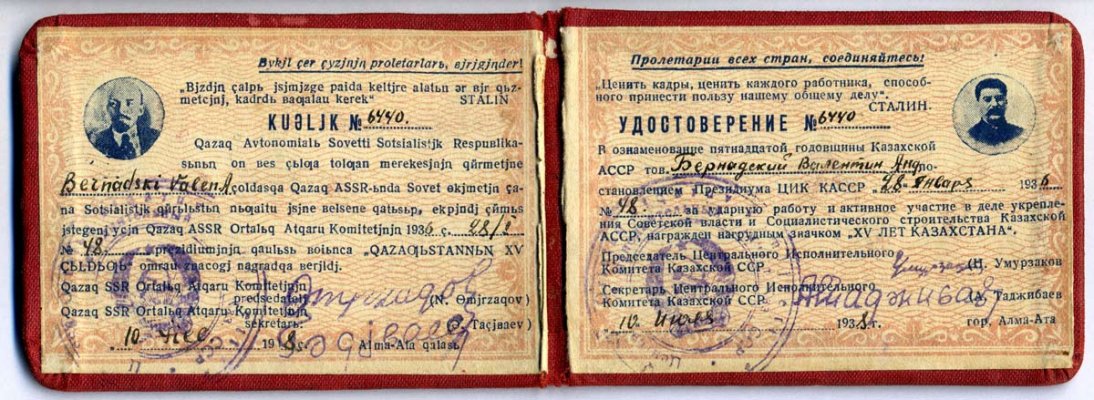 Bykil çer çyzinin proletarları, birigiŋder!
„Bizdin çalpь isimizge paida keltire alatuƣ ər bir qьz-
metcini, kadrdь baƣalau kerek“
STALIN
KUƏLIK № 6440.
Qazaq Avtonomialь Sovetti Sotsialistik Respublika-
sьnьŋ on bes çьlƣa tolƣan merekesinin qurmetine
Bernadski Valen A çoldasqa Qazaq ASSR-ьnda Sovet økimetin ça-
na Sotsialistik qurьlьstьƣ nьƣaitu isine belsene qatьsьp, ekpindi çumьs
istegeni ycin Qazaq ASSR Ortalьq Atqaru Komitetinin 1936 ç. 28/I
№ 48 prezidiumьnьŋ qaulьsь boiьnca „QAZAƢЬSTANNЬƢ XV
ÇЬLDЬƢЬ“ omrau znacogi nagradƣa berildi.
Qazaq SSR Ortalьq Atqaru Komitetinin
predsedateli
(N. Ømirzaqov)
Qazaq SSR Ortalьq Atqaru Komitetinin
sekretarь:
Taçiвaev)
10 1938 ç. Alma-Ata qalasь
Пролетарии всех стран, соединяйтесь!
„Ценить кадры, ценить каждого работника, способ-
ного принести пользу нашему общему делу“.
СТАЛИН.
УДОСТОВЕРЕНИЕ № 6440
В ознаменование пятнадцатой годовщины Казахской
АССР тов. Бернадский Валентин Анд по-
становлением Президиума ЦИК КАССР „28“ Января 1936
№ 48 за ударную работу и активное участие в деле укрепле-
ния Советской власти и Социалистического строительства Казахской
АССР, награжден нагрудным значком „XV ЛЕТ КАЗАХСТАНА“.
Председатель Центрального Исполнительного
Комитета Казахской ССР (Н. Умурзаков
Секретарь Центрального Исполнительного
Комитета Казахской ССР Таджибаев
„10“ Июля 1938 г. гор. Алма-Ата